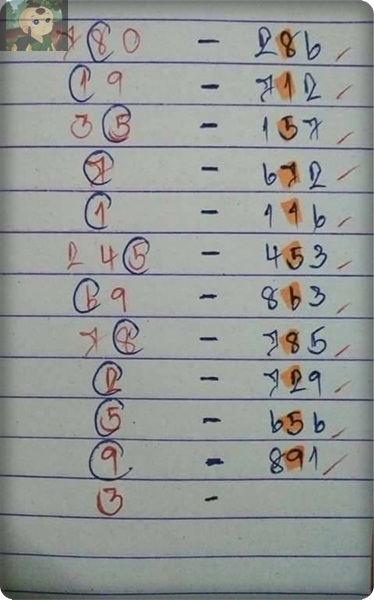 780 - 286
19 - 712
35 - 157
7 - 672
1 - 116
245 - 453
69 - 863
78 - 785
2 - 729
5 - 656
9 - 891
3 -